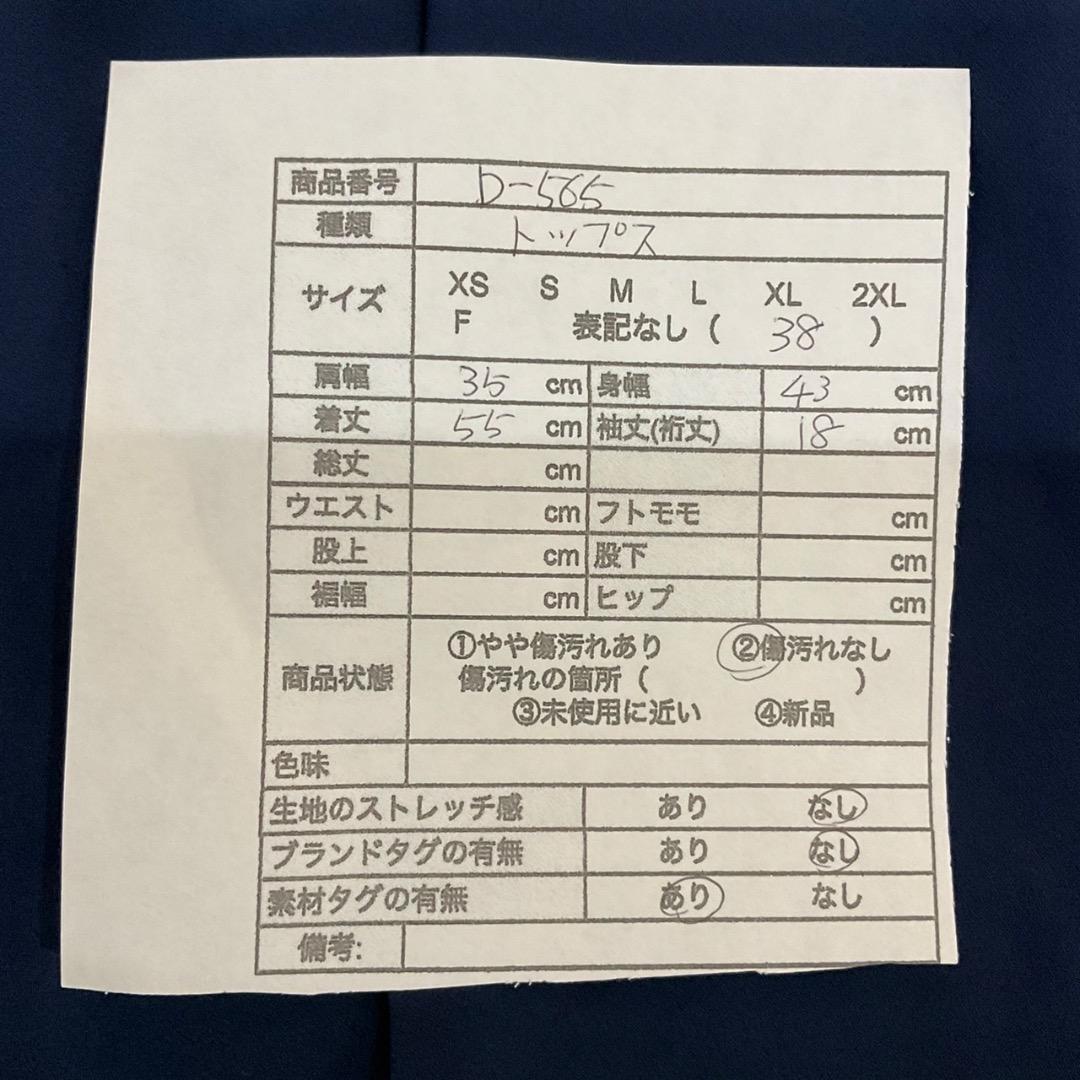 商品番号 D-565
種類 トップス
サイズ XS S M L XL 2XL
F 表記なし ( 38 )
肩幅 35 cm 身幅 43 cm
着丈 55 cm 袖丈(裄丈) 18 cm
総丈 cm
ウエスト cm フトモモ cm
股上 cm 股下 cm
裾幅 cm ヒップ cm
商品状態 ①やや傷汚れあり ②傷汚れなし
傷汚れの箇所 ( )
③未使用に近い ④新品
色味
生地のストレッチ感 あり なし
ブランドタグの有無 あり なし
素材タグの有無 あり なし
備考: